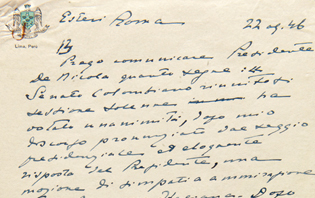 Lima, Perú
Esteri Roma 22 ag. 46
Prego comunicare Presidente
De Nicola quanto segue
Senato Colombiano riunitosi
sessione solenne ha
votato unanimità, dopo mio
discorso pronunziato dal seggio
presidenziale ed eloquente
risposta del Presidente, una
mozione di simpatia ammirazione
Dopo